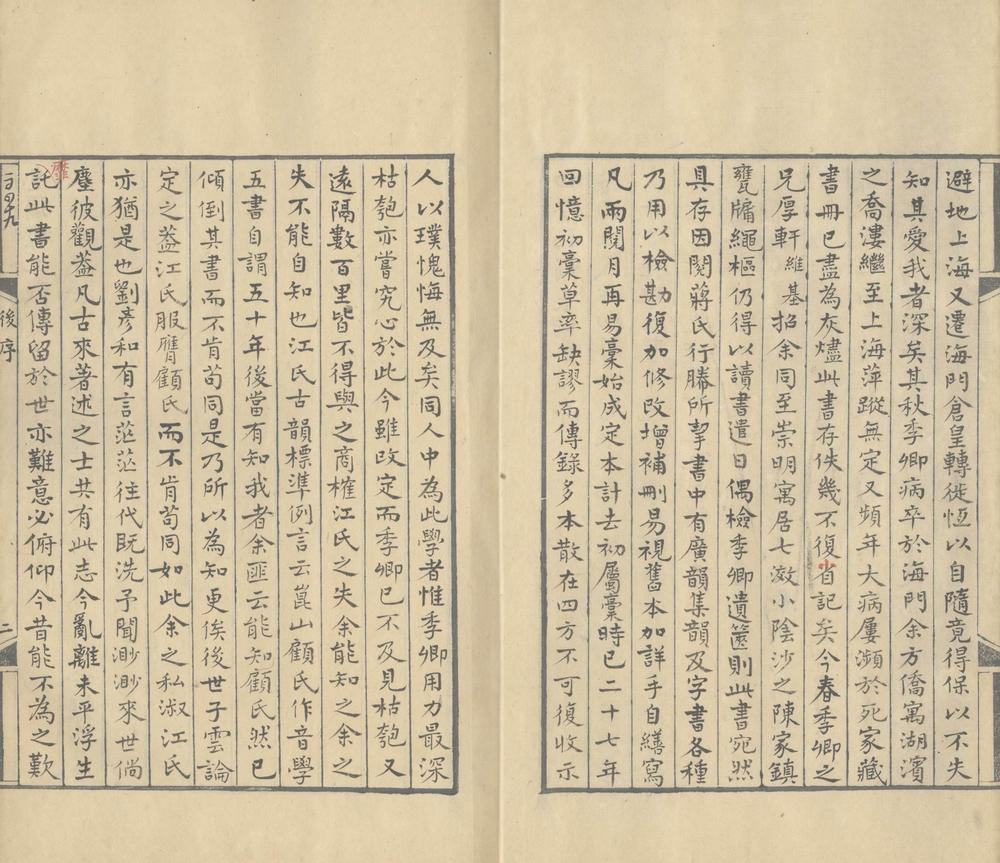 避地上海又遷海門倉皇轉徙恆以自隨竟得保以不失
知其愛我者深矣其秋季卿病卒於海門余方僑寓湖濱
之喬漊繼至上海萍蹤無定又頻年大病屢瀕於死家藏
書冊已盡為灰燼此書存佚幾不復省記矣今春季卿之
兄厚軒維基招余同至崇明寓居七滧小陰沙之陳家鎮
甕牖繩樞仍得以讀書遣日偶檢季卿遺篋則此書宛然
具存因閱蔣氏行縢所挈書中有廣韻集韻及字書各種
乃用以檢勘復加修改增補刪易視舊本加詳手自繕寫
凡兩閱月再易稾始成定本計去初屬稾時已二十七年
回憶初稾草率缺謬而傳錄多本散在四方不可復收示
人以璞愧悔無及矣同人中為此學者惟季卿用力最深
枯匏亦嘗究心於此今雖改定而季卿已不及見枯匏又
遠隔數百里皆不得與之商榷江氏之失余能知之余之
失不能自知也江氏古韻標準例言云崑山顧氏作音學
五書自謂五十年後當有知我者余匪云能知顧氏然已
傾倒其書而不肯苟同是乃所以為知更俟後世子雲論
定之葢江氏服膺顧氏而不肯苟同如此余之私淑江氏
亦猶是也劉彥和有言茫茫往代既洗予聞渺渺來世倘
塵彼觀葢凡古來著述之士共有此志今亂離未平浮生
託此書能否傳留於世亦難意必俯仰今昔能不為之歎
後序
二